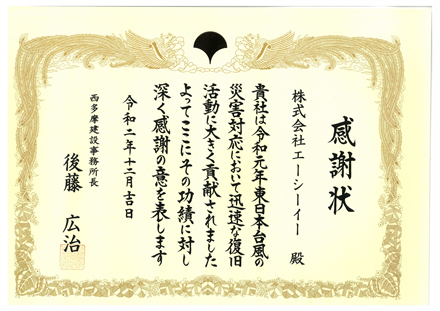 感謝状
株式会社エーシーイー 殿
貴社は令和元年東日本台風の
災害対応において迅速な復旧
活動に大きく貢献されました
よってここにその功績に対し
深く感謝の意を表します
令和二年十二月吉日
西多摩建設事務所長
後藤 広治